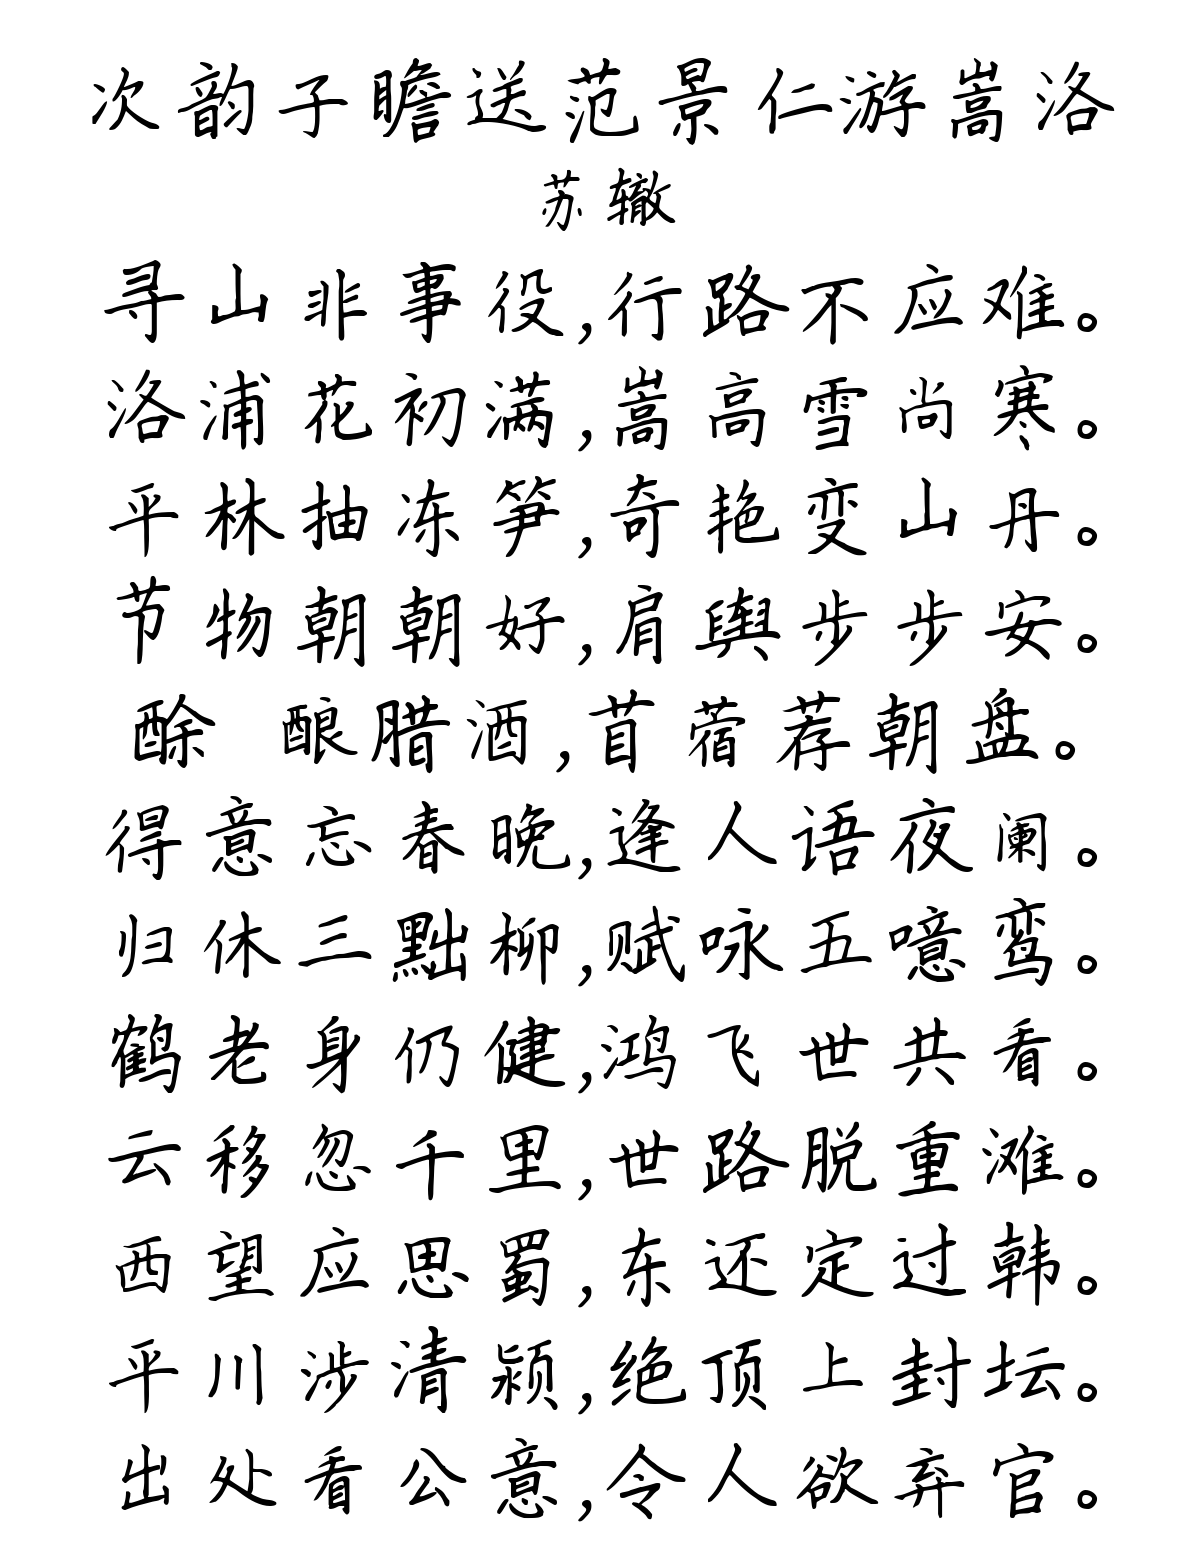 次韵子瞻送范景仁游嵩洛
苏辙
寻山非事役,行路不应难。
洛浦花初满,嵩高雪尚寒。
平林抽冻笋,奇艳变山丹。
节物朝朝好,肩舆步步安。
酴 酿腊酒,苜蓿荐朝盘。
得意忘春晚,逢人语夜阑。
归休三黜柳,赋咏五噫鸾。
鹤老身仍健,鸿飞世共看。
云移忽千里,世路脱重滩。
西望应思蜀,东还定过韩。
平川涉清颍,绝顶上封坛。
出处看公意,令人欲弃官。